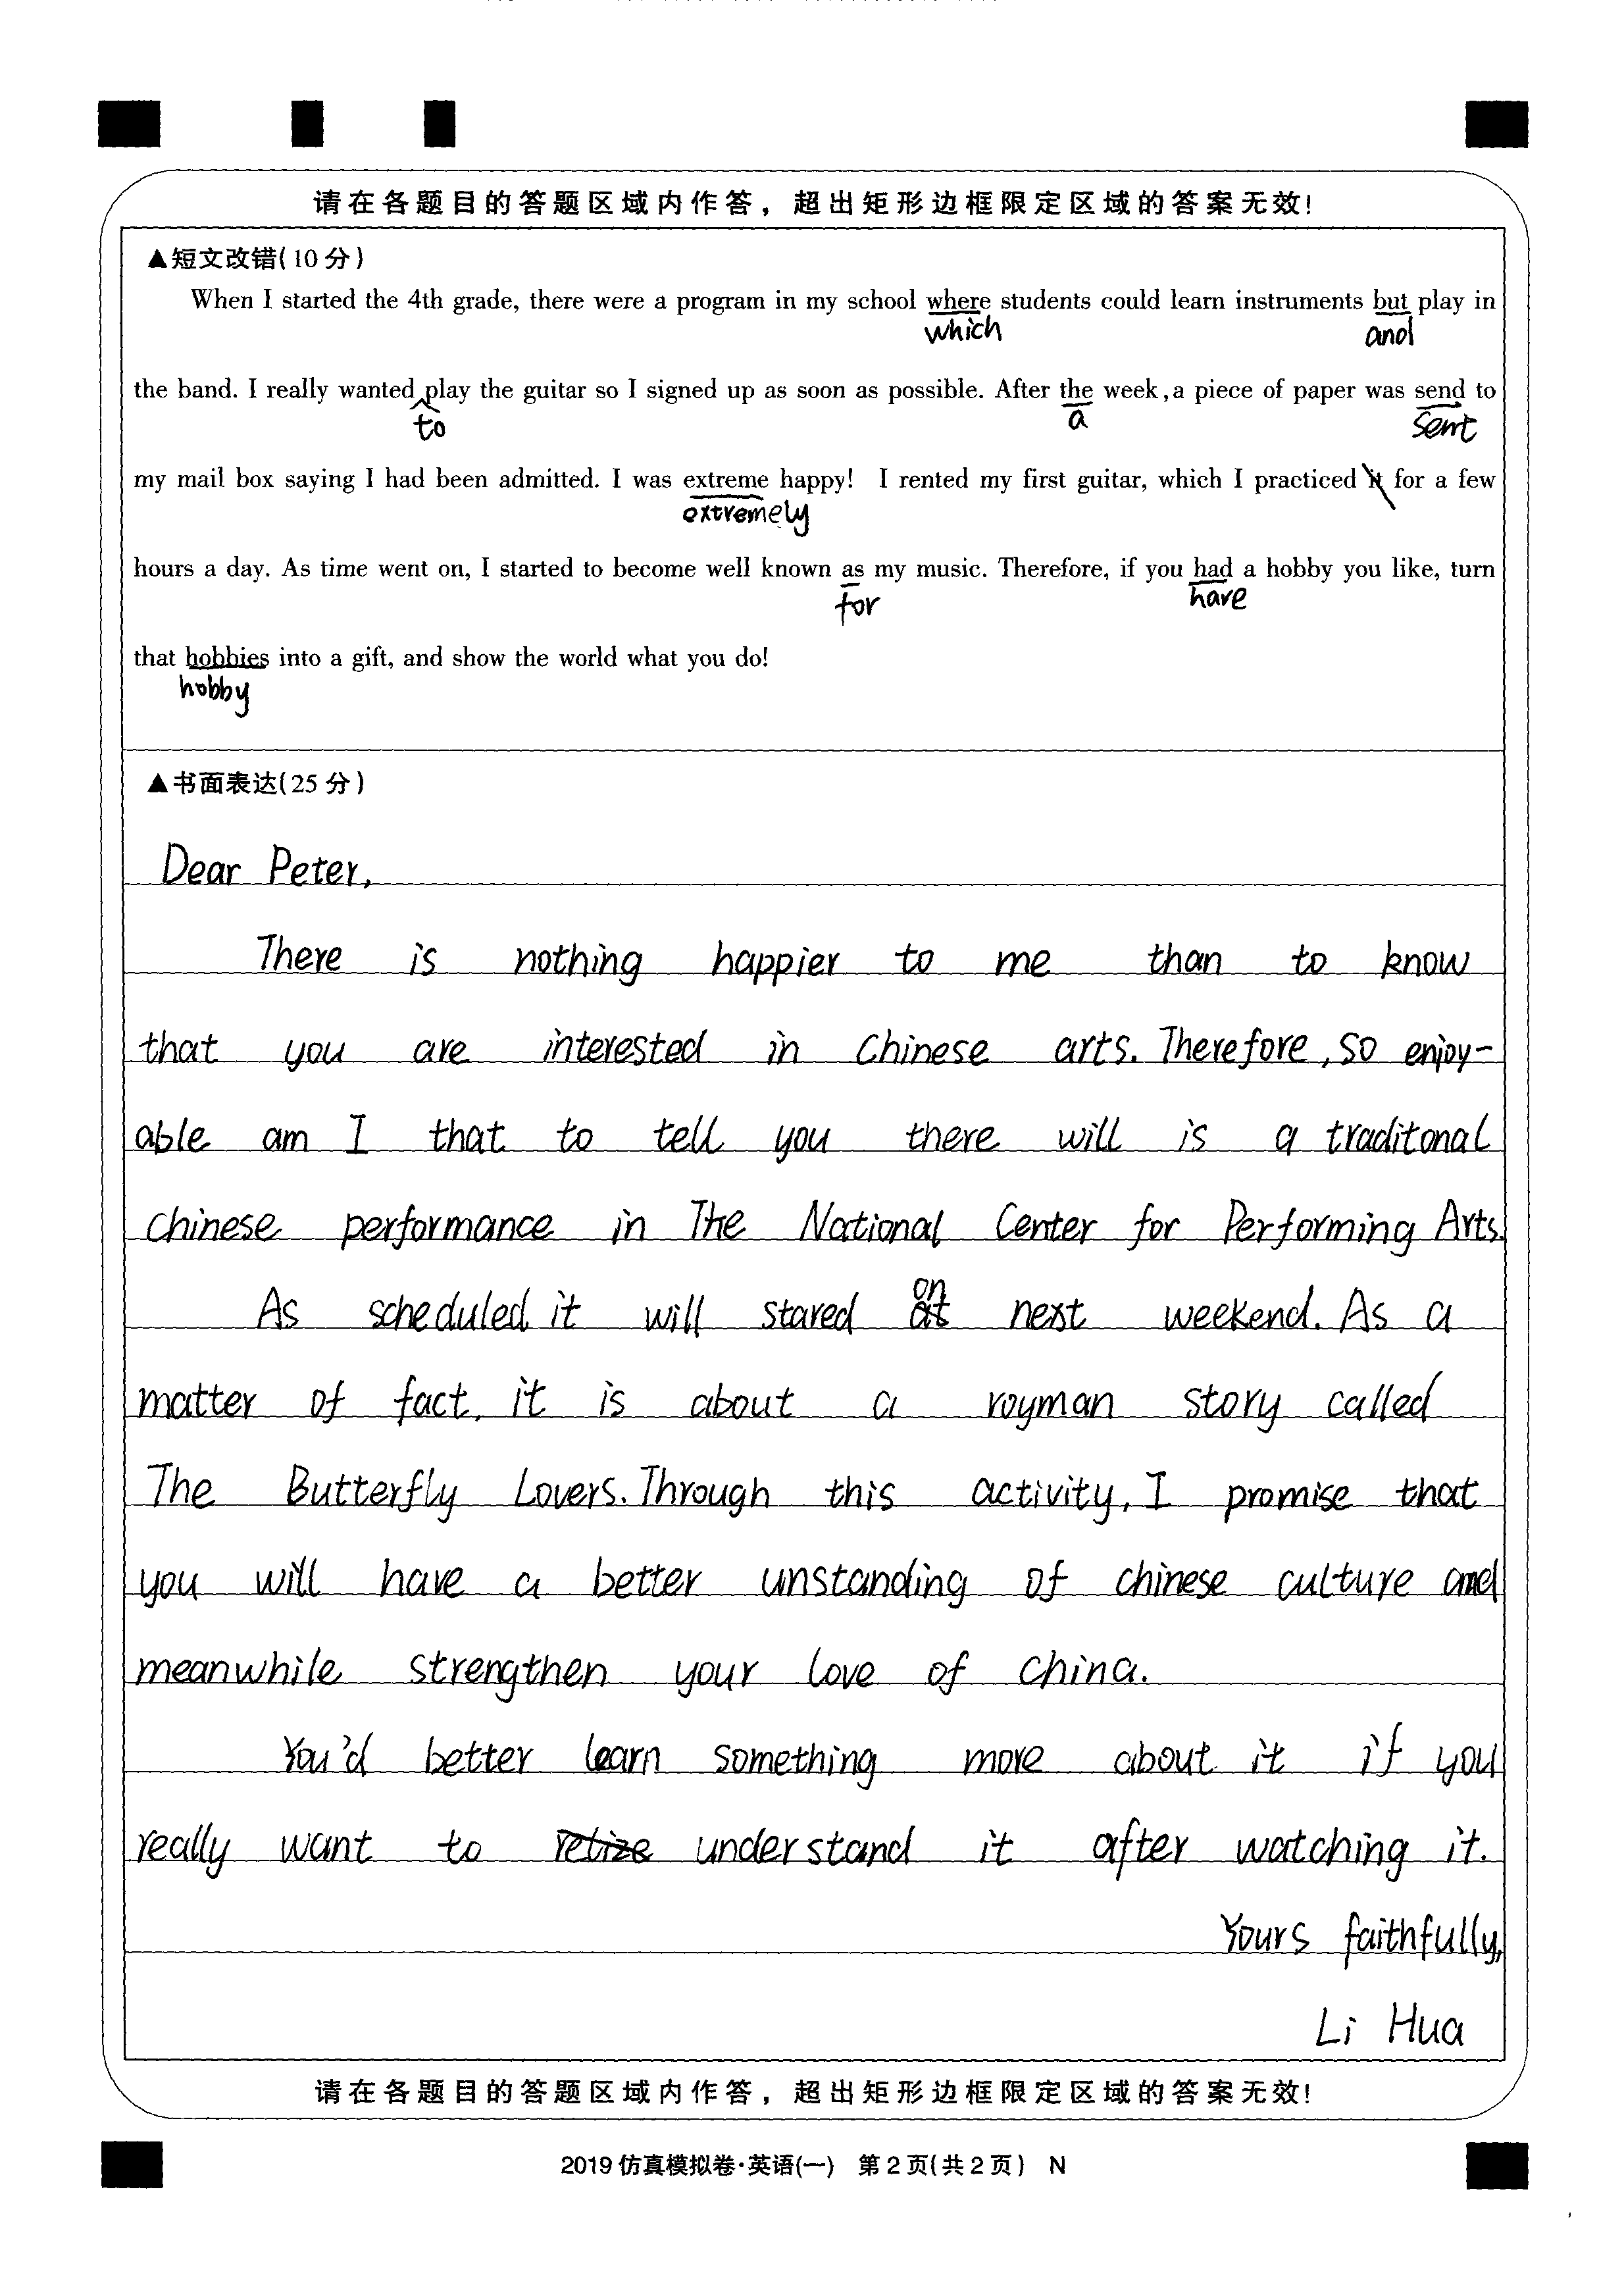 请在各题目的答题区域内作答，超出矩形边框限定区域的答案无效！
▲短文改错(10分)
When I started the 4th grade, there were a program in my school where students could learn instruments but play in
which and
the band. I really wanted play the guitar so I signed up as soon as possible. After the week, a piece of paper was send to
to a sent
my mail box saying I had been admitted. I was extreme happy! I rented my first guitar, which I practiced it for a few
extremely
hours a day. As time went on, I started to become well known as my music. Therefore, if you had a hobby you like, turn
for have
that hobbies into a gift, and show the world what you do!
hobby
▲书面表达(25分)
Dear Peter,
There is nothing happier to me than to know
that you are interested in Chinese arts. Therefore, so enjoy-
able am I that to tell you there will is a traditonal
chinese performance in The National Center for Performing Arts.
on
As scheduled it will stared at next weekend. As a
matter of fact, it is about a royman story called
The Butterfly Lovers. Through this activity, I promise that
you will have a better unstanding of chinese culture and
meanwhile strengthen your love of china.
You'd better learn something more about it if you
really want to understand it after watching it.
Yours faithfully,
Li Hua
请在各题目的答题区域内作答，超出矩形边框限定区域的答案无效！
2019仿真模拟卷·英语(一) 第2页(共2页) N